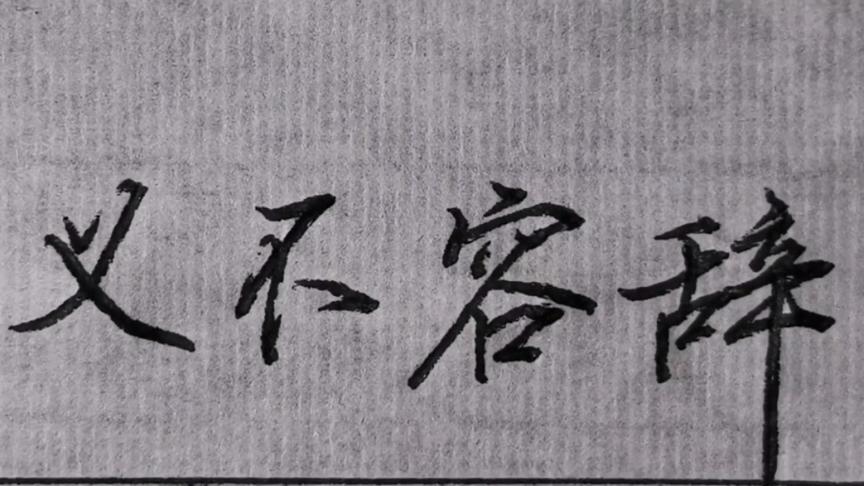 义不容辞